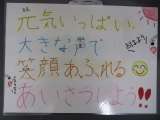 元気いっぱい。
大きな声で
おはよう
笑顔あふれる
あいさつしよう!!